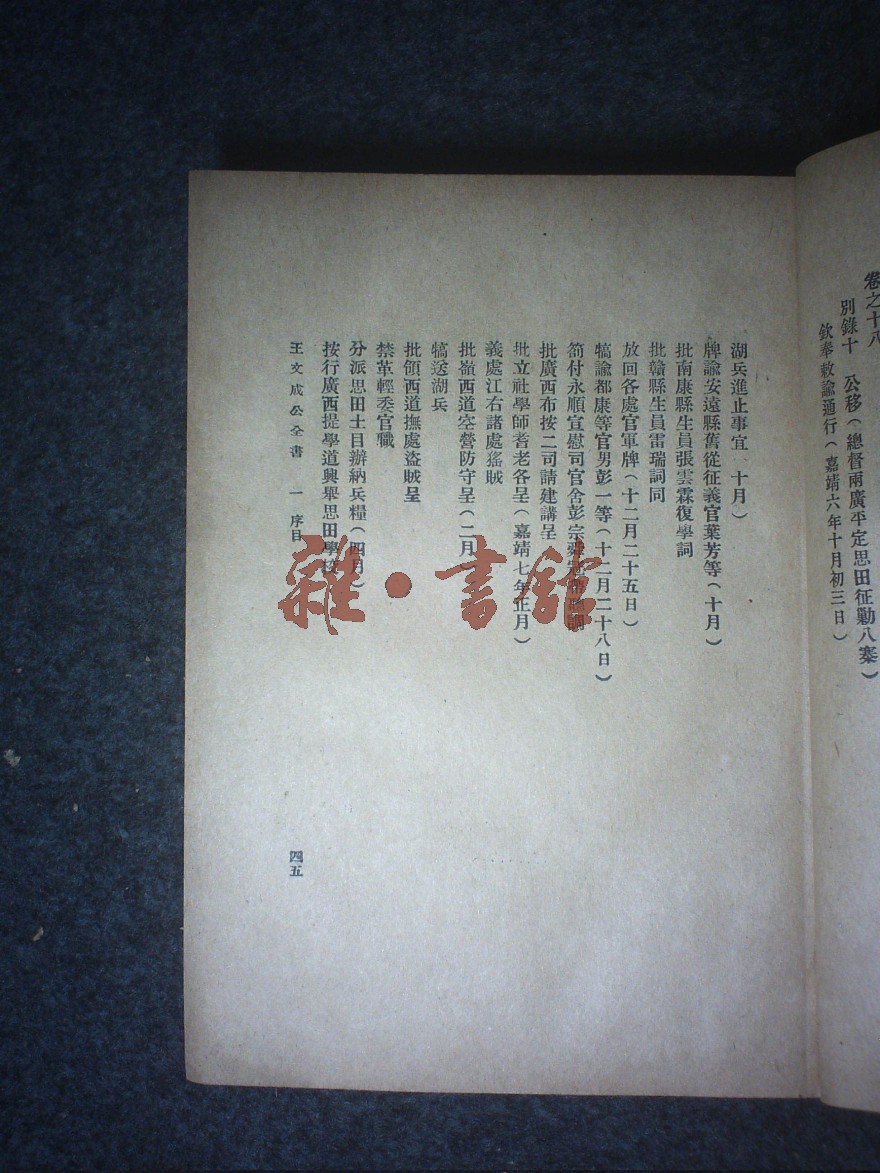 卷之十八
別錄十　公移（總督兩廣平定思田征勦八寨）
欽奉敕諭通行（嘉靖六年十月初三日）
湖兵進止事宜　十月）
牌諭安遠縣舊從征義官葉芳等（十月）
批南康縣生員張雲霖復學詞
批贛縣生員雷瑞詞同
放回各處官軍牌（十二月二十五日）
犒諭都康等官男彭一等（十二月二十八日）
箚付永順宣慰司官舍彭宗舜冠帶
批廣西布按二司請建講呈
批立社學師耆老各呈（嘉靖七年正月）
義處江右諸處猺賊
批嶺西道空營防守呈（二月
犒送湖兵
批領西道撫處盜賊呈
禁革輕委官職
分派思田土目辦納兵糧（四月）
按行廣西提學道興舉思田學校
王文成公全書　一　序目
四五
雜·書館